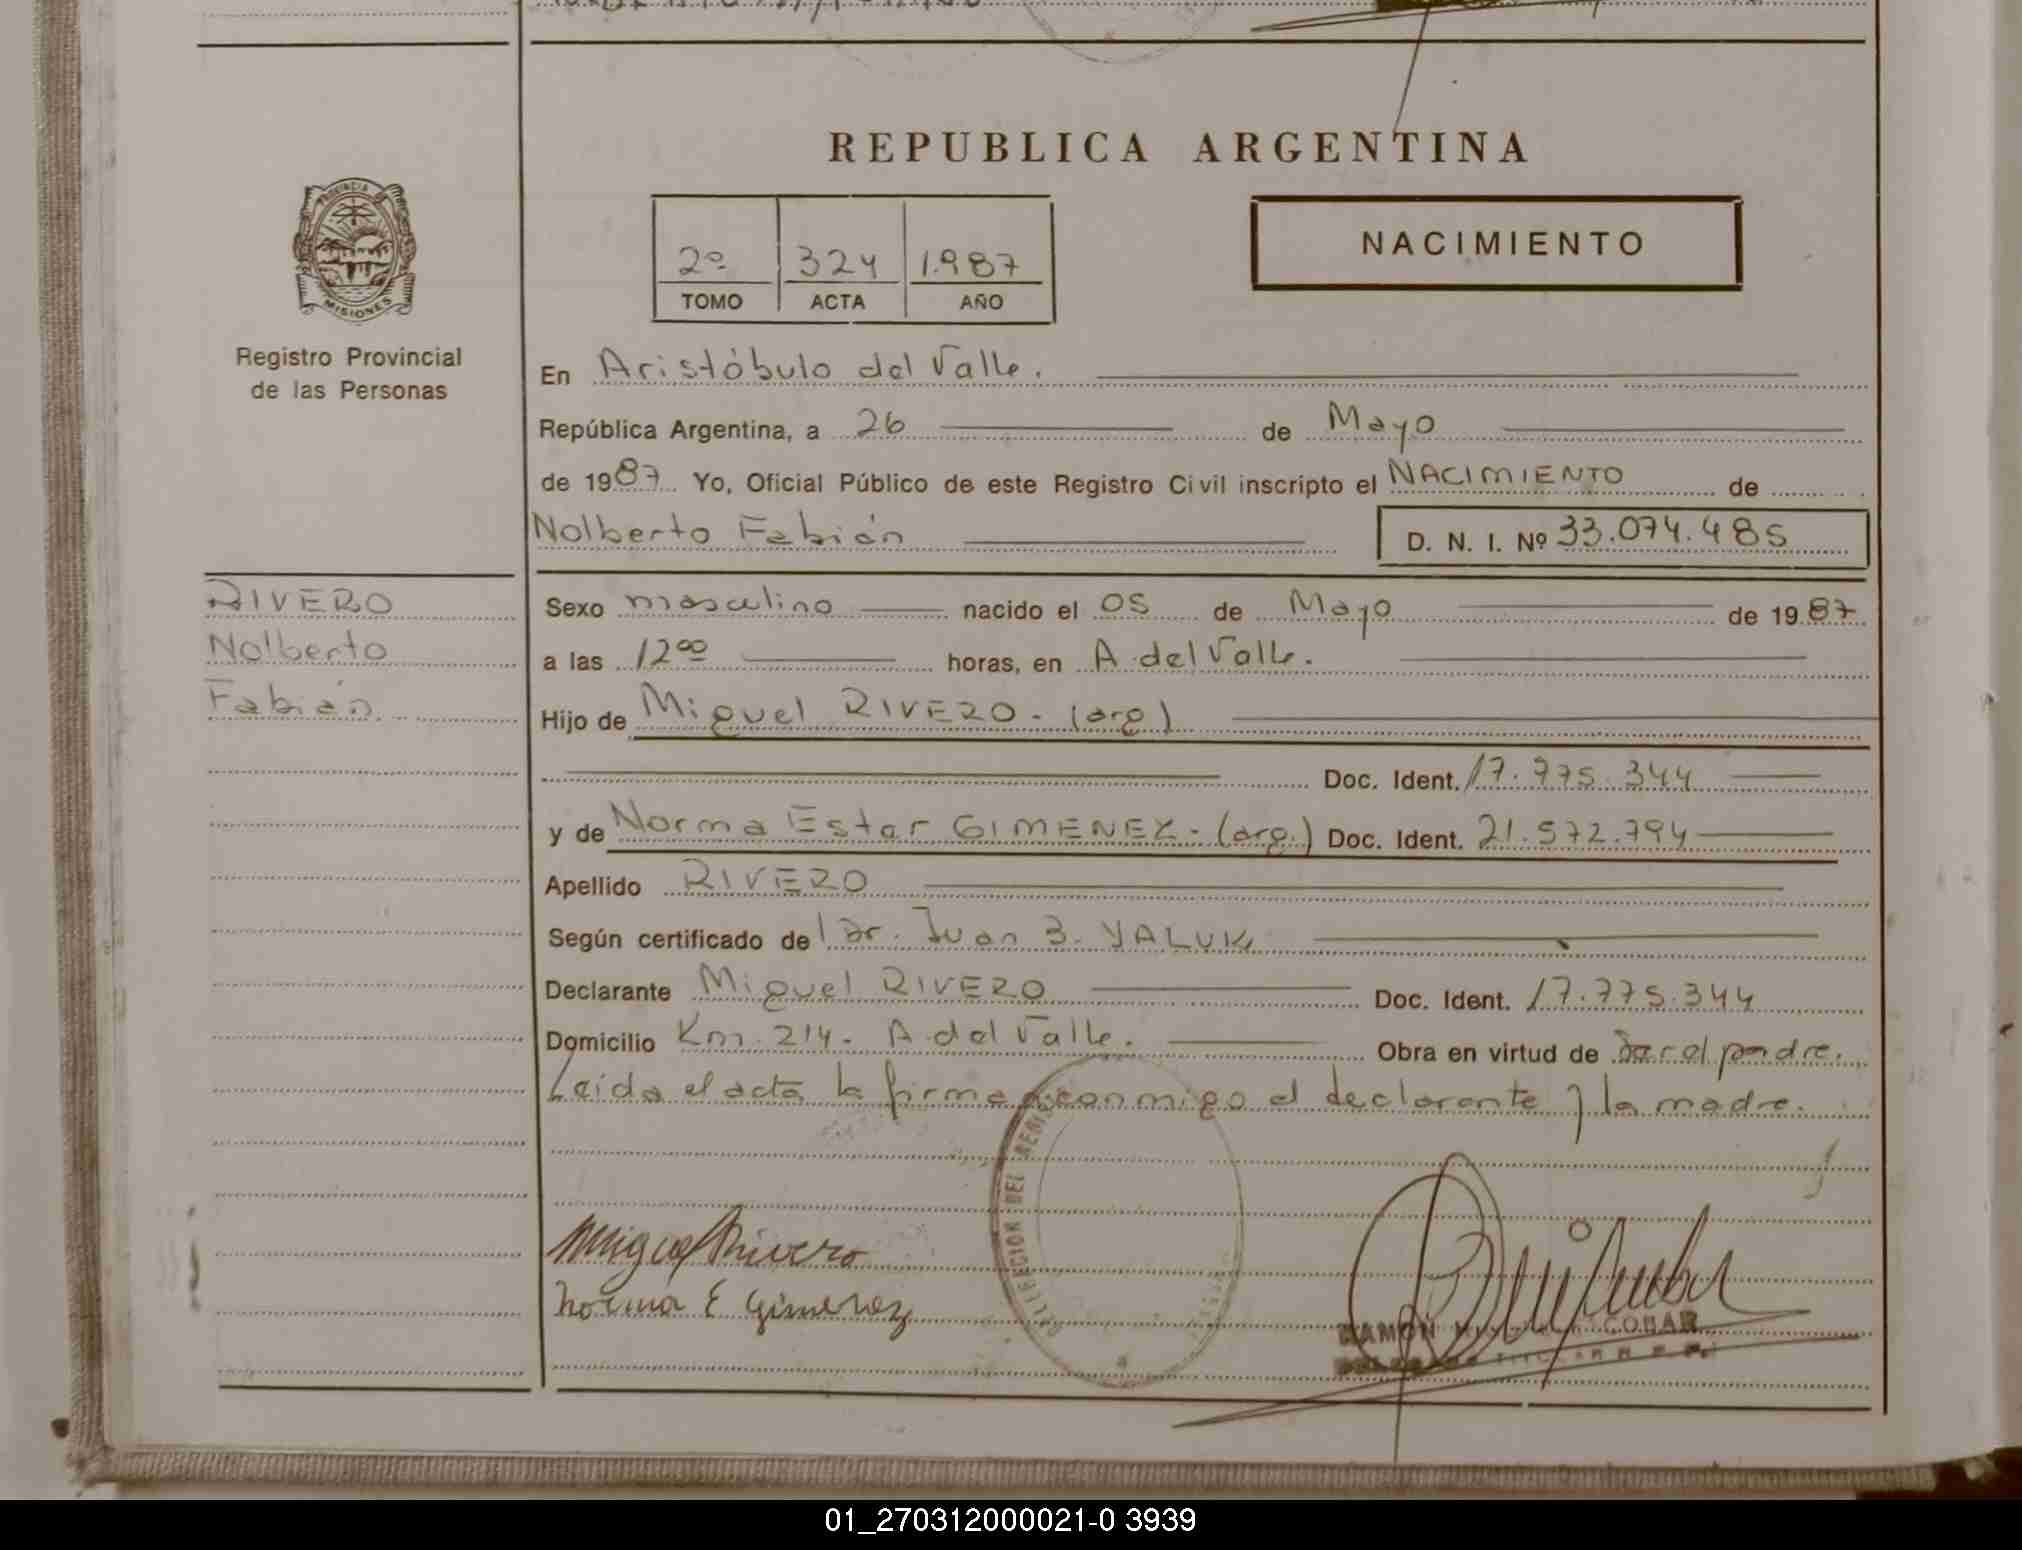 REPUBLICA ARGENTINA
PROVINCIA DE
MISIONES
Registro Provincial
de las Personas
2º 324 1.987
TOMO ACTA AÑO
NACIMIENTO
En Aristóbulo del Valle.
República Argentina, a 26 de Mayo
de 1987 Yo, Oficial Público de este Registro Civil inscripto el NACIMIENTO de
Nolberto Fabián D. N. I. Nº 33.074.485
RIVERO
Nolberto
Fabián
Sexo masculino nacido el 05 de Mayo de 1987
a las 12ºº horas, en A. del Valle.
Hijo de Miguel RIVERO - (arg)
Doc. Ident. 17.775.344
y de Norma Ester GIMENEZ - (arg.) Doc. Ident. 21.572.794
Apellido RIVERO
Según certificado de Dr. Juan B. YALUK
Declarante Miguel RIVERO Doc. Ident. 17.775.344
Domicilio Km. 214 - A. del Valle. Obra en virtud de Ser el padre.
Leída el acta la firman conmigo el declarante y la madre.
DEL
Miguel Rivero
Norma E Gimenez
RAMON
01_270312000021-0 3939